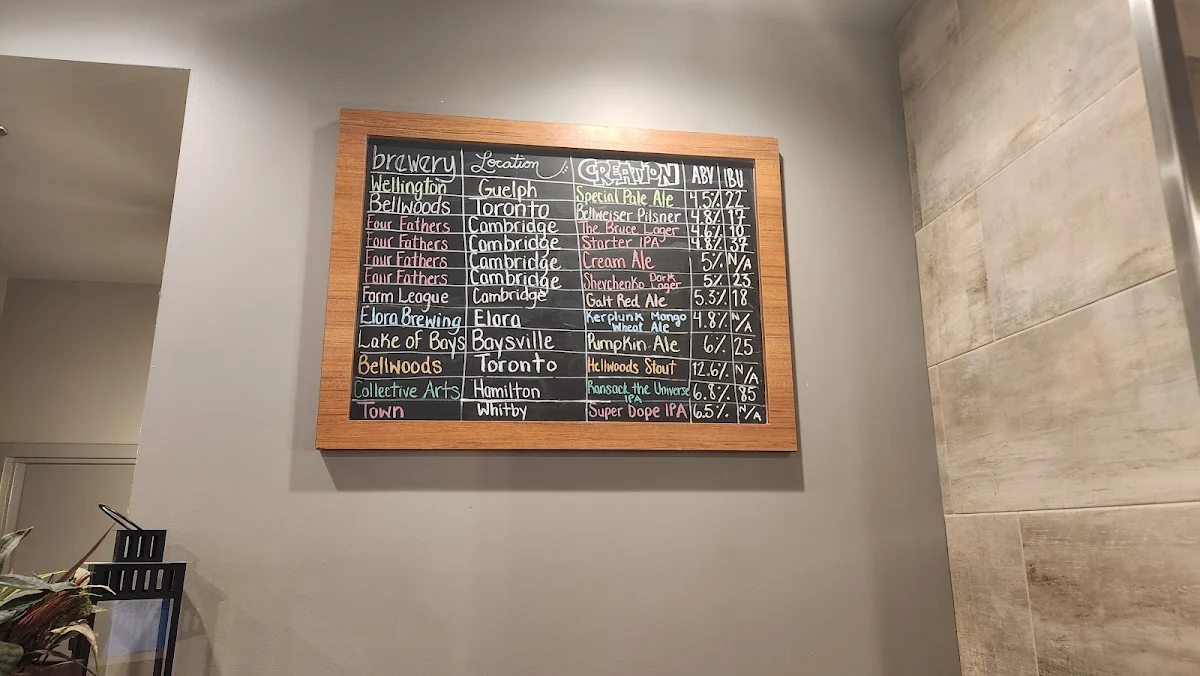 brewery Location CREATION ABV IBU
Wellington Guelph Special Pale Ale 4.5% 22
Bellwoods Toronto Bellweiser Pilsner 4.8% 17
Four Fathers Cambridge The Bruce Lager 4.6% 10
Four Fathers Cambridge Starter IPA 4.8% 37
Four Fathers Cambridge Cream Ale 5% N/A
Four Fathers Cambridge Shevchenko Dark Lager 5% 23
Farm League Cambridge Galt Red Ale 5.3% 18
Elora Brewing Elora Kerplunk Mango Wheat Ale 4.8% N/A
Lake of Bays Baysville Pumpkin Ale 6% 25
Bellwoods Toronto Hellwoods Stout 12.6% N/A
Collective Arts Hamilton Ransack the Universe IPA 6.8% 85
Town Whitby Super Dope IPA 6.5% N/A